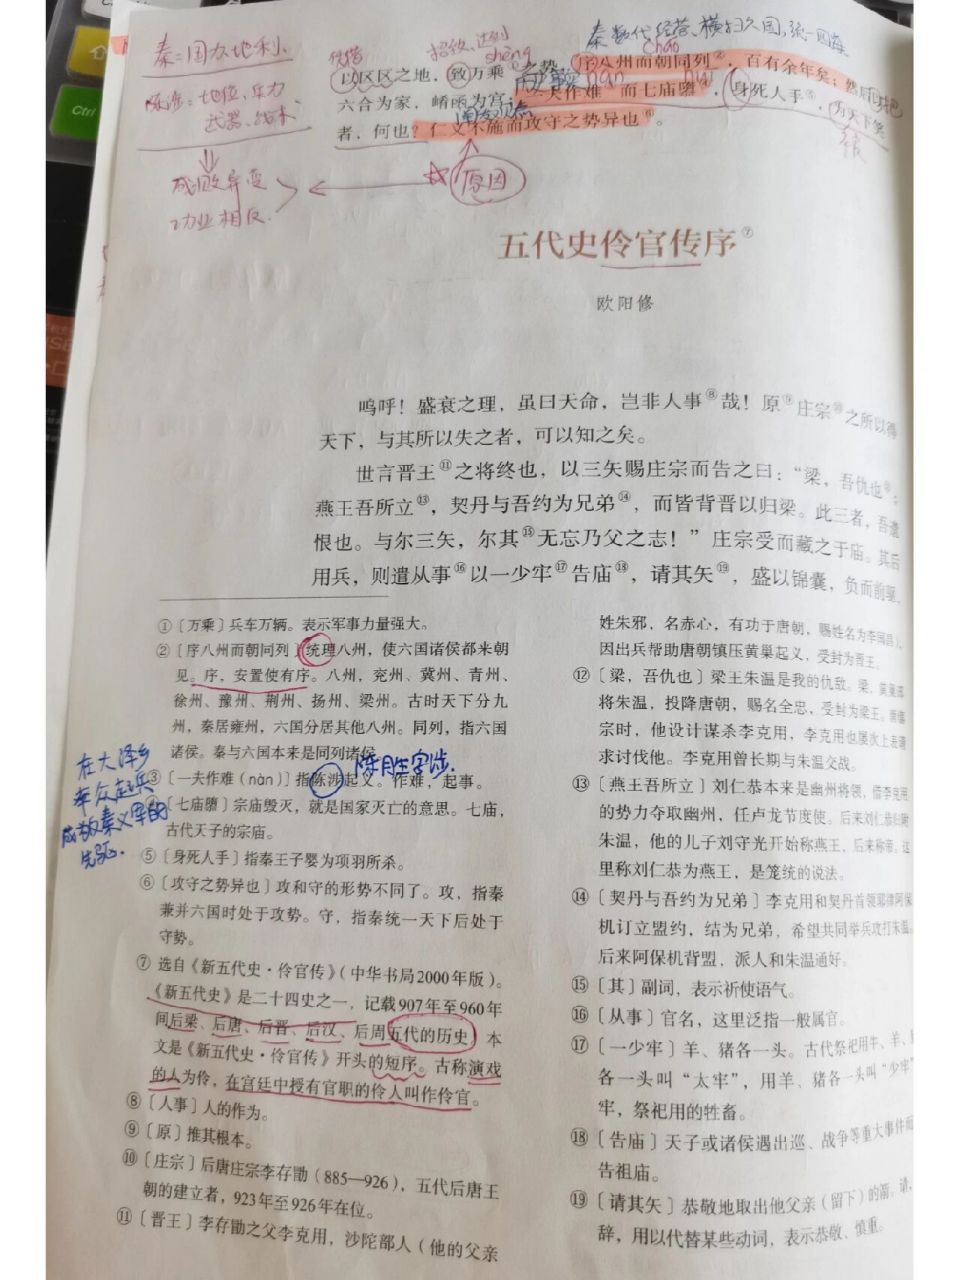 秦:国力地利、
陈涉:地位、兵力
武器、战术
成败异变
功业相反.
原因
招致、达到
shèng
cháo
nàn
huī
以区区之地,致万乘①之势,序八州而朝同列②,百有余年矣;然后以
六合为家,崤函为宫;一夫作难③而七庙隳④,身死人手⑤,为天下笑
者,何也?仁义不施而攻守之势异也⑥。
五代史伶官传序⑦
欧阳修
呜呼!盛衰之理,虽曰天命,岂非人事⑧哉!原⑨庄宗⑩之所以得
天下,与其所以失之者,可以知之矣。
世言晋王⑪之将终也,以三矢赐庄宗而告之曰:“梁,吾仇也⑫;
燕王吾所立⑬,契丹与吾约为兄弟⑭,而皆背晋以归梁。此三者,吾遗
恨也。与尔三矢,尔其⑮无忘乃父之志!”庄宗受而藏之于庙。其后
用兵,则遣从事⑯以一少牢⑰告庙⑱,请其矢⑲,盛以锦囊,负而前驱,
①〔万乘〕兵车万辆。表示军事力量强大。
②〔序八州而朝同列〕统理八州,使六国诸侯都来朝
见。序,安置使有序。八州,兖州、冀州、青州、
徐州、豫州、荆州、扬州、梁州。古时天下分九
州,秦居雍州,六国分居其他八州。同列,指六国
诸侯。秦与六国本来是同列诸侯。
陈胜字涉.
在大泽乡
率众起兵
成为反秦义军的
先驱.
③〔一夫作难(nàn)〕指陈涉起义。作难,起事。
④〔七庙隳〕宗庙毁灭,就是国家灭亡的意思。七庙,
古代天子的宗庙。
⑤〔身死人手〕指秦王子婴为项羽所杀。
⑥〔攻守之势异也〕攻和守的形势不同了。攻,指秦
兼并六国时处于攻势。守,指秦统一天下后处于
守势。
⑦ 选自《新五代史·伶官传》(中华书局2000年版)。
《新五代史》是二十四史之一,记载907年至960年
间后梁、后唐、后晋、后汉、后周五代的历史。本
文是《新五代史·伶官传》开头的短序。古称演戏
的人为伶,在宫廷中授有官职的伶人叫作伶官。
⑧〔人事〕人的作为。
⑨〔原〕推其根本。
⑩〔庄宗〕后唐庄宗李存勖(885—926),五代后唐王
朝的建立者,923年至926年在位。
⑪〔晋王〕李存勖之父李克用,沙陀部人(他的父亲
姓朱邪,名赤心,有功于唐朝,赐姓名为李国昌),
因出兵帮助唐朝镇压黄巢起义,受封为晋王。
⑫〔梁,吾仇也〕梁王朱温是我的仇敌。梁,黄巢部
将朱温,投降唐朝,赐名全忠,受封为梁王。唐僖
宗时,他设计谋杀李克用,李克用也屡次上表请
求讨伐他。李克用曾长期与朱温交战。
⑬〔燕王吾所立〕刘仁恭本来是幽州将领,借李克用
的势力夺取幽州,任卢龙节度使。后来刘仁恭归附
朱温,他的儿子刘守光开始称燕王,后来称帝。这
里称刘仁恭为燕王,是笼统的说法。
⑭〔契丹与吾约为兄弟〕李克用和契丹首领耶律阿保
机订立盟约,结为兄弟,希望共同举兵攻打朱温。
后来阿保机背盟,派人和朱温通好。
⑮〔其〕副词,表示祈使语气。
⑯〔从事〕官名,这里泛指一般属官。
⑰〔一少牢〕羊、猪各一头。古代祭祀用牛、羊、猪
各一头叫“太牢”,用羊、猪各一头叫“少牢”。
牢,祭祀用的牲畜。
⑱〔告庙〕天子或诸侯遇出巡、战争等重大事件而
告祖庙。
⑲〔请其矢〕恭敬地取出他父亲(留下)的箭。请,
辞,用以代替某些动词,表示恭敬、慎重。